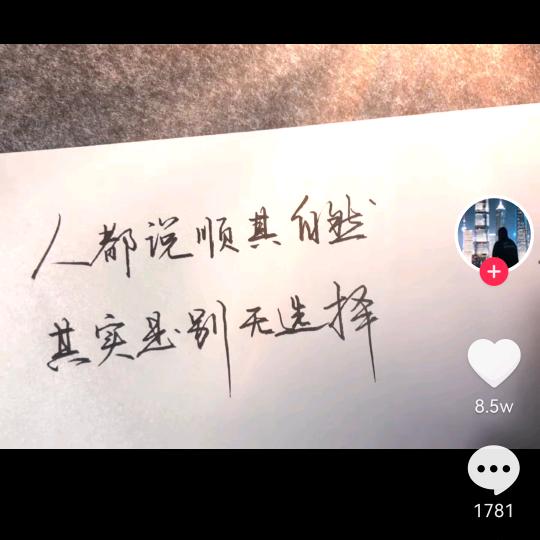 人都说顺其自然
其实是别无选择
8.5w
1781